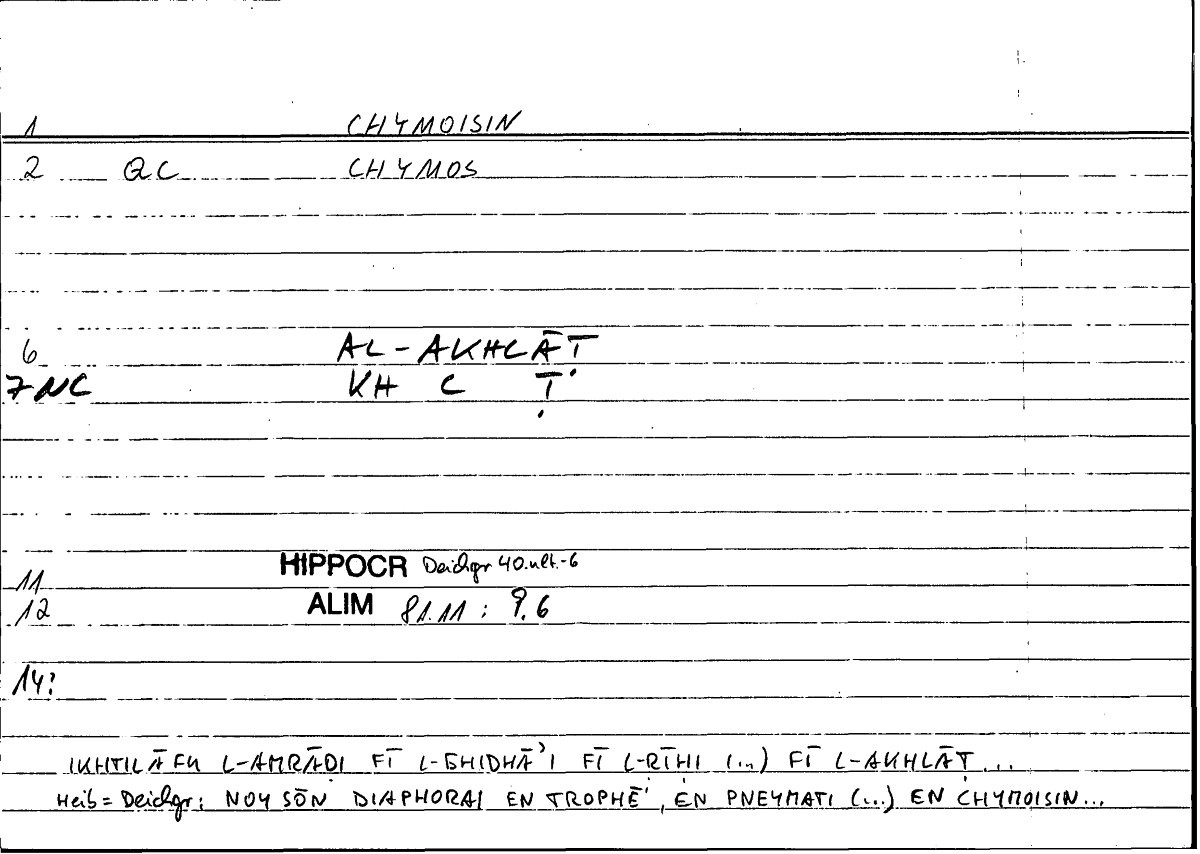 1 CHYMOISIN
2 QC CHYMOS
6 AL-AKHLĀṬ
7 NC KH L Ṭ
11 HIPPOCR Deichgr 40.ult.-6
12 ALIM 81.11 : 9.6
14?
IKHTILĀFU L-AMRĀḌI FĪ L-GHIDHĀ'I FĪ L-RĪḤI (...) FĪ L-AKHLĀṬ...
Heib = Deichgr: NOYSŌN DIAPHORAI EN TROPHĒ, EN PNEYMATI (...) EN CHYMOISIN...